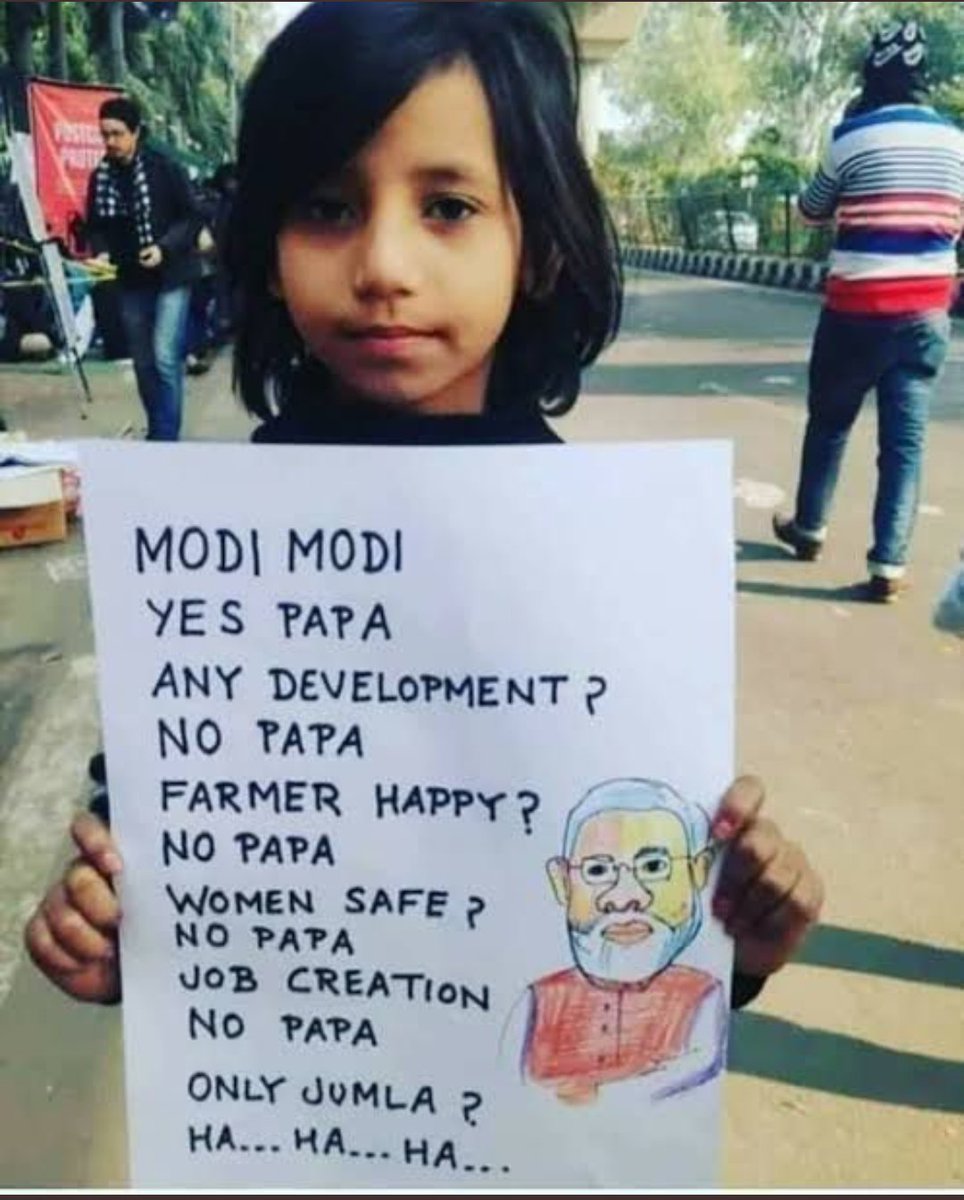 POSTCARD
PROTEST
MODI MODI
YES PAPA
ANY DEVELOPMENT?
NO PAPA
FARMER HAPPY?
NO PAPA
WOMEN SAFE?
NO PAPA
JOB CREATION
NO PAPA
ONLY JUMLA?
HA... HA... HA...